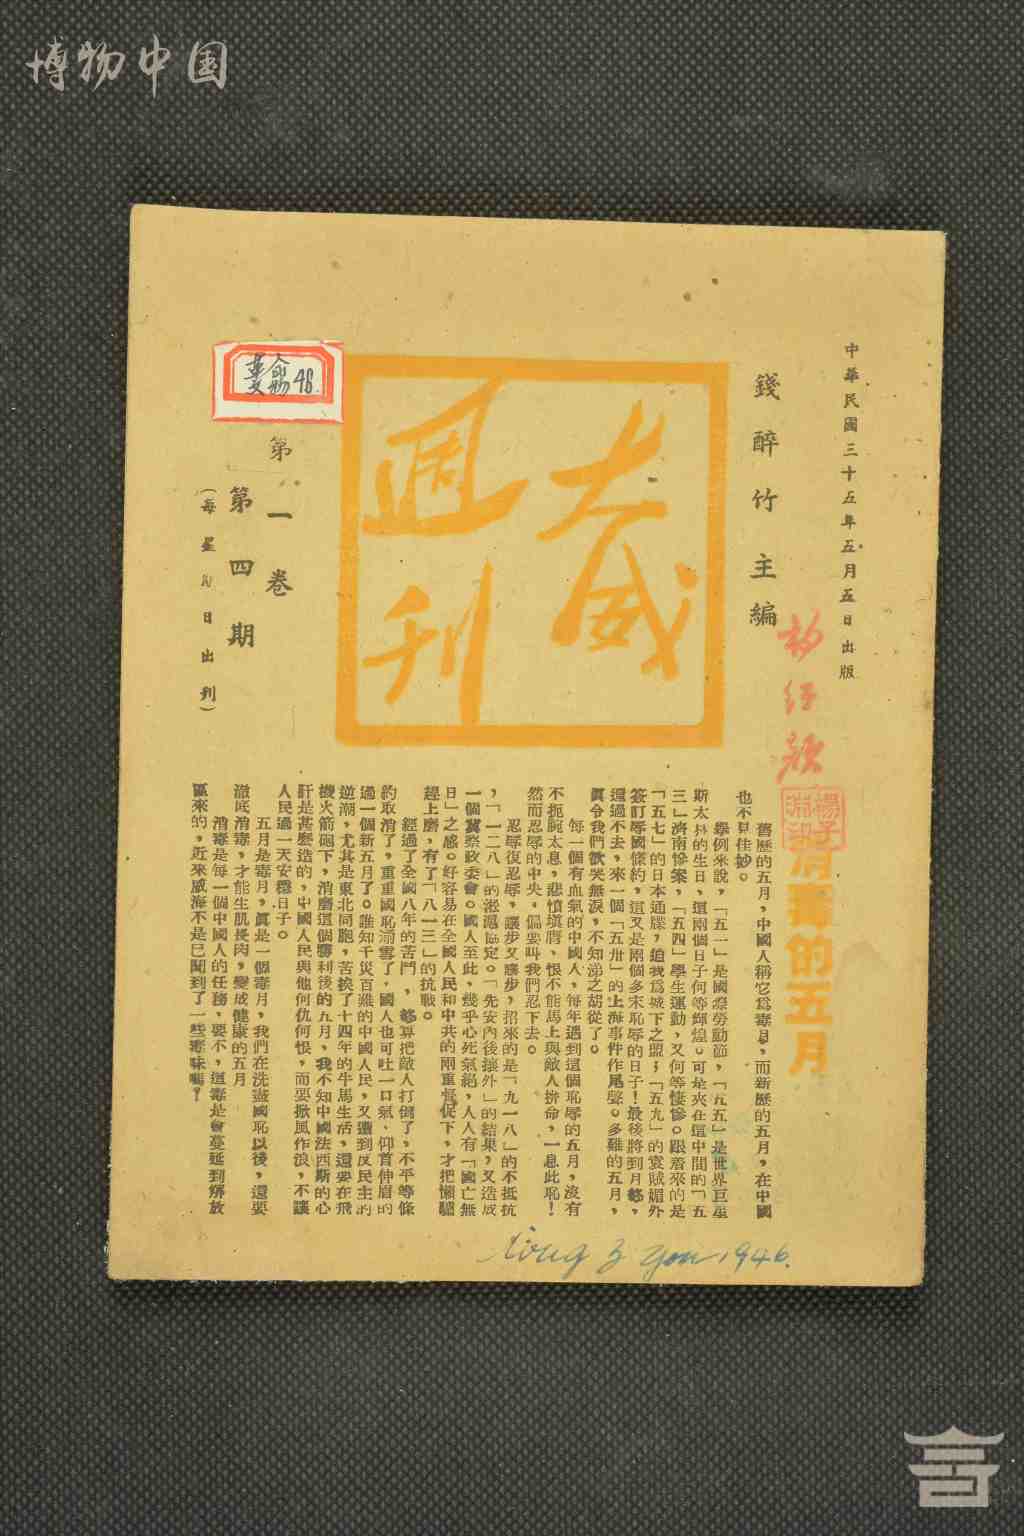 博物中国
中華民國三十五年五月五日出版
錢醉竹主編
大威
週刊
第一卷
第四期
（每星期日出刊）
48
消毒的五月
舊歷的五月，中國人稱它爲毒月，而新歷的五月，在中國
也不見佳妙。
舉例來說，「五一」是國際勞動節，「五五」是世界巨星
斯太林的生日，這兩個日子何等輝煌。可是夾在這中間的「五
三」濟南慘案，「五四」學生運動，又何等悽慘。跟着來的是
「五七」的日本通牒，迫我爲城下之盟；「五九」的袁賊媚外
簽訂辱國條約，這又是兩個多末恥辱的日子！最後將到月終，
還過不去，來一個「五卅」的上海事件作尾聲。多難的五月，
眞令我們欲哭無淚，不知涕之胡從了。
每一個有血氣的中國人，每年遇到這個恥辱的五月，沒有
不扼腕太息，悲憤塡膺，恨不能馬上與敵人拚命，一息此恥！
然而忍辱的中央，偏要叫我們忍下去。
忍辱復忍辱，讓步又讓步，招來的是「九一八」的不抵抗
，「一二八」的淞滬協定。「先安內後攘外」的結果，又造成
一個冀察政委會。國人至此，幾乎心死氣絕，人人有「國亡無
日」之感。好容易在全國人民和中共的兩重督促下，才把懶驢
趕上磨，有了「八一三」的抗戰。
經過了全國八年的苦鬥，總算把敵人打倒了，不平等條
約取消了，重重國恥湔雪了，國人也可吐一口氣、仰首伸眉的
過一個新五月了。誰知千災百難的中國人民，又遭到反民主的
逆潮，尤其是東北同胞，苦挨了十四年的牛馬生活，還要在飛
機火箭砲下，消磨這個勝利後的五月，我不知中國法西斯的心
肝是甚麼造的，中國人民與他何仇何恨，而要掀風作浪，不讓
人民過一天安穩日子。
五月是毒月，眞是一個毒月，我們在洗盡國恥以後，還要
澈底消毒，才能生肌長肉，變成健康的五月
消毒是每一個中國人的任務，要不，這毒是會蔓延到解放
區來的，近來威海不是已聞到了一些毒味嗎？
1946.